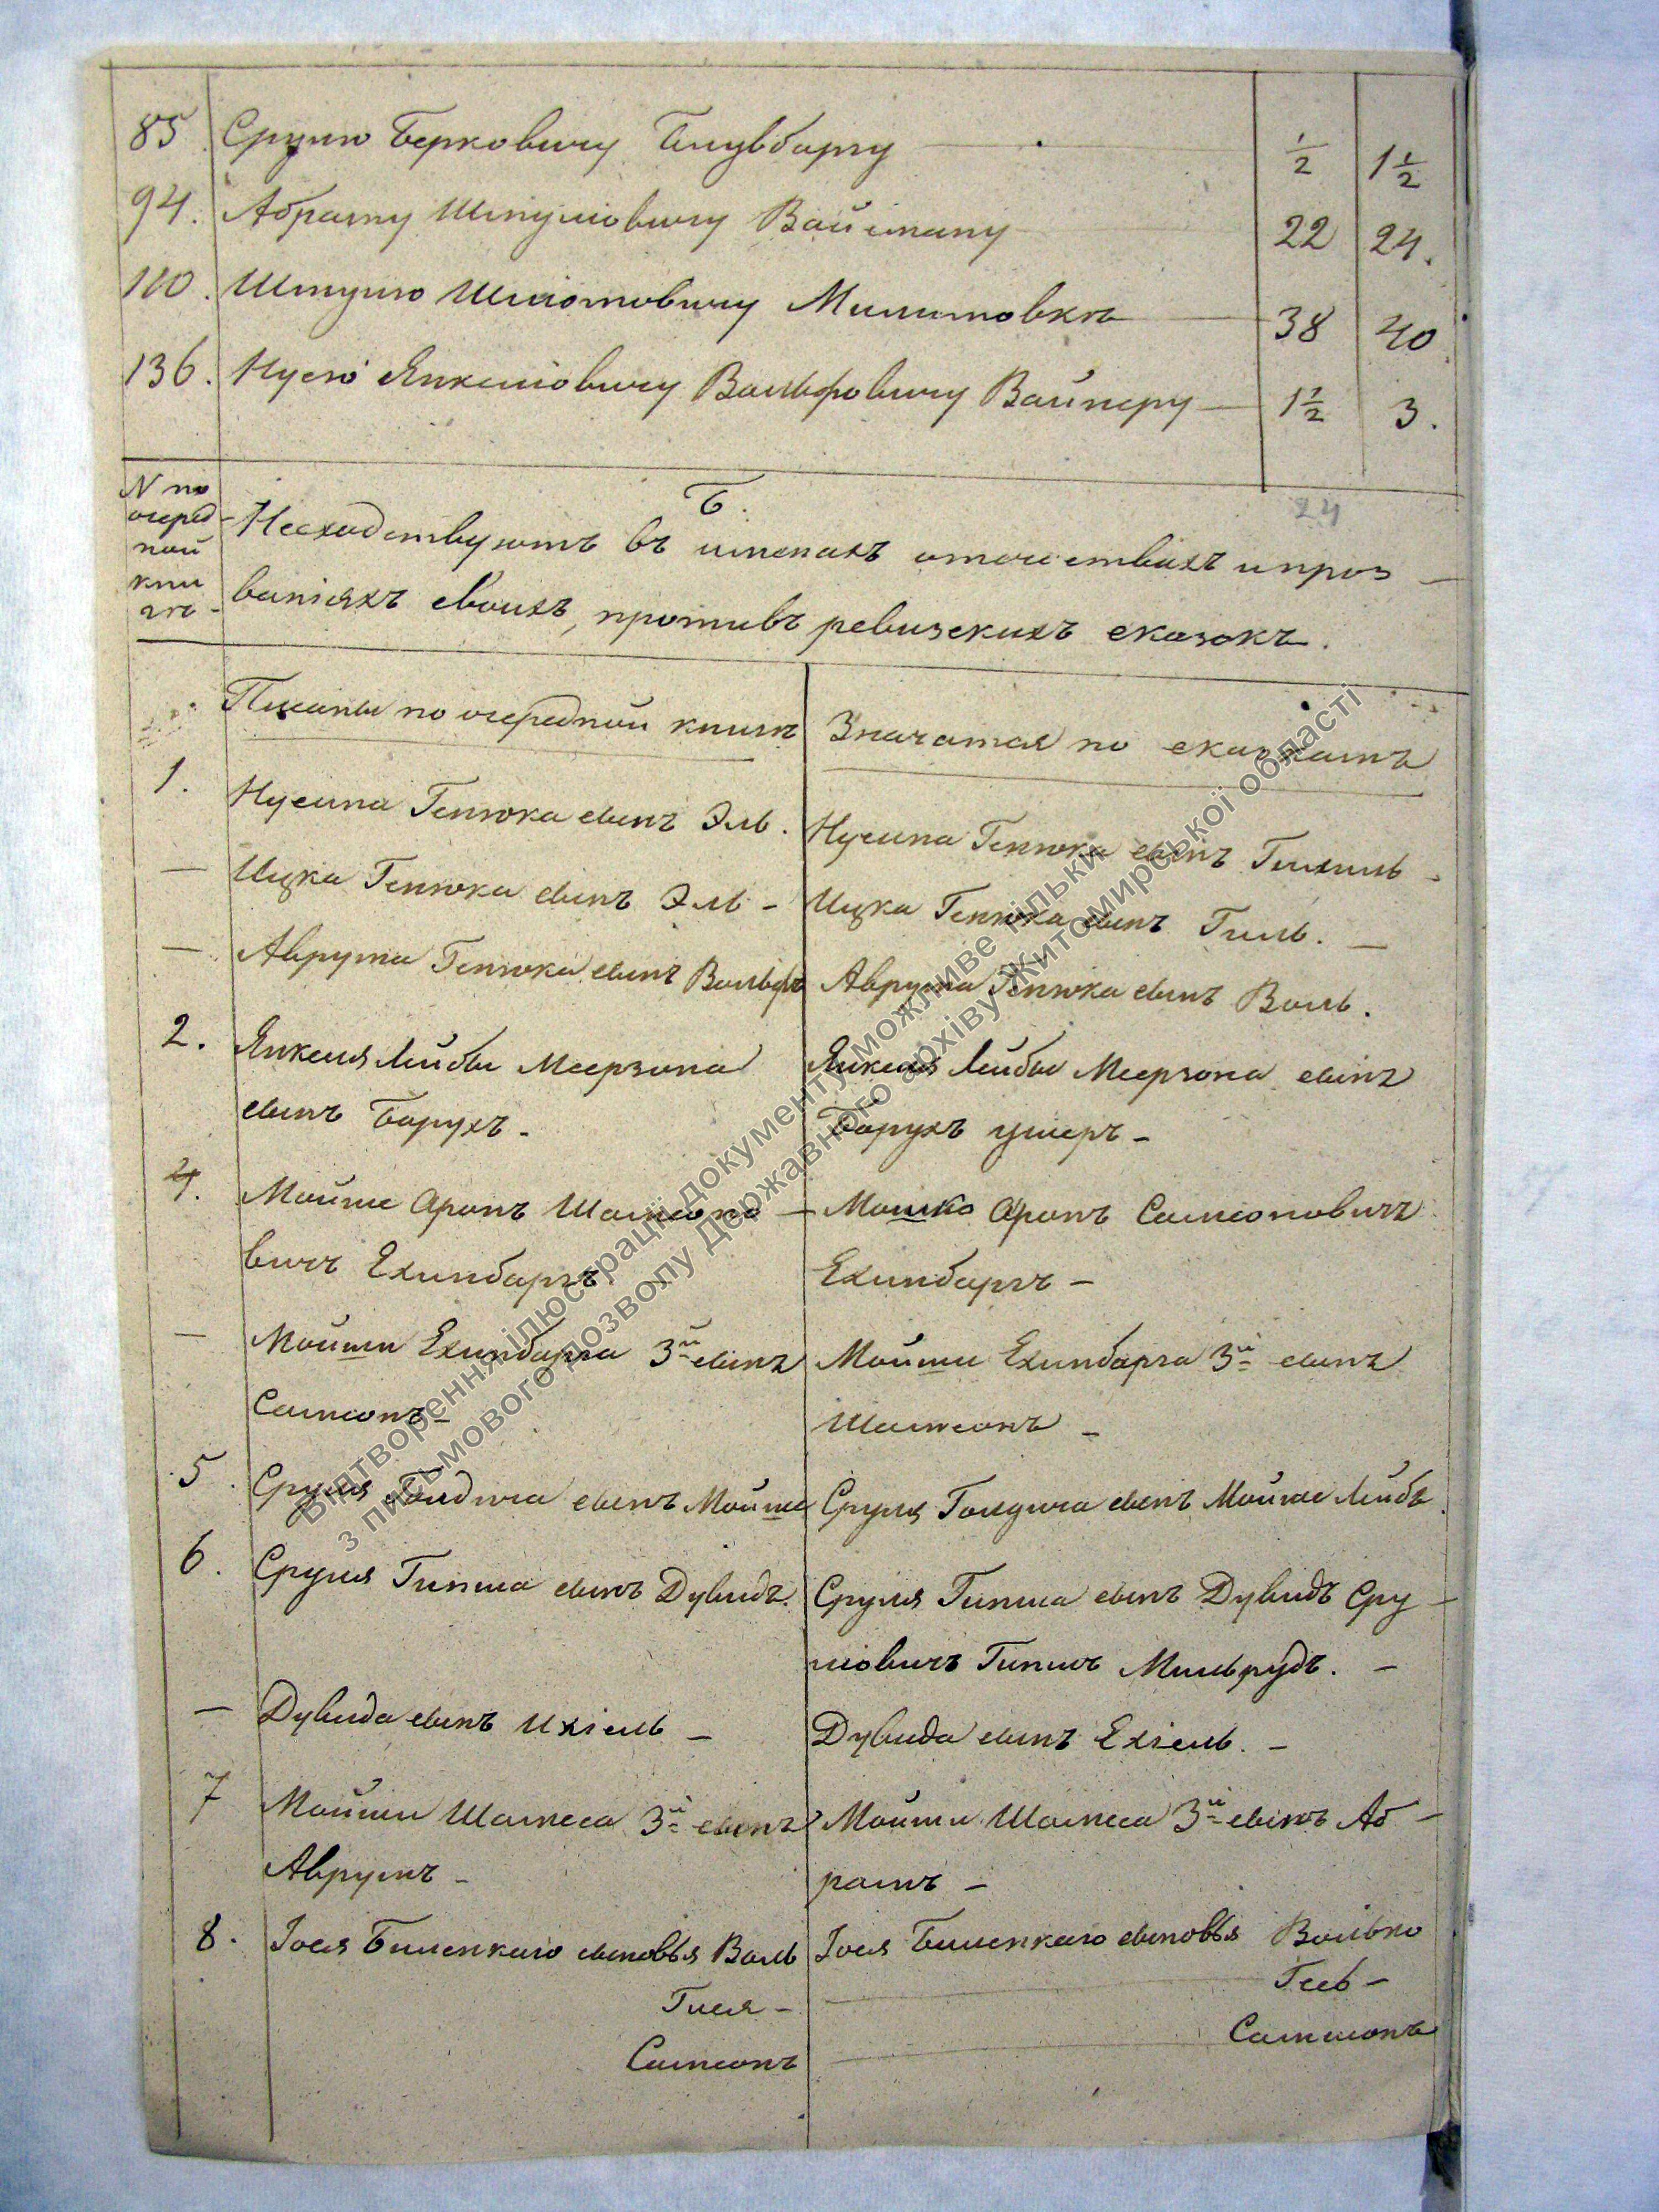 85. Срулю Берковичу Блувбаргу ½ 1½
94. Абраму Шмулiовичу Вайсману 22 24.
110. Шмулю Шлiомовичу Милимовкѣ 38 40
136. Нусю Янкелiовичу Вольфовичу Вайнеру 1½ 3.
N по очеред-ной кни гѣ-
Б.
24
Несходствуютъ въ именахъ отечествахъ и проз-
ванiяхъ своихъ, противъ ревизскихъ сказокъ.
Писаны по очередной книгѣ
Значатся по сказкамъ
1. Нусина Генюка сынъ Эль.
Нусина Генюка сынъ Гихиль -
— Ицка Генюка сынъ Эль -
Ицка Генюка сынъ Гиль. —
— Аврума Генюка сынъ Вольфъ
Аврума Генюка сынъ Воль.
2. Янкеля Лейбы Меерзона
сынъ Борухъ -
Янкеля Лейбы Меерзона сынъ
Борухъ Ушеръ -
4. Мойше Аронъ Шамсоно-
вичъ Ехинбаргъ
Мошко Аронъ Самсоновичъ
Ехинбаргъ —
— Мойши Ехинбарга 3й сынъ
Самсонъ -
Мойши Ехинбарга 3й сынъ
Шамсонъ -
5. Сруля Голдиша сынъ Мойше
Сруля Голдиша сынъ Мойше Лейбъ
6. Сруля Гипша сынъ Дувидъ.
Сруля Гипша сынъ Дувидъ Сру-
лiовичъ Гипшъ Мильрудъ. —
— Дувида сынъ Ихiель —
Дувида сынъ Ехiель. —
7 Мойши Шамеса 3й сынъ
Аврумъ -
Мойши Шамеса 3й сынъ Аб-
рамъ -
8. Iося Биленкаго сыновья Воль
Гися -
Самсонъ
Iося Биленкаго сыновья Волько
Гесь -
Самшонъ
Відтворення ілюстрації документу можливе тільки
з письмового дозволу Державного архіву Житомирської області